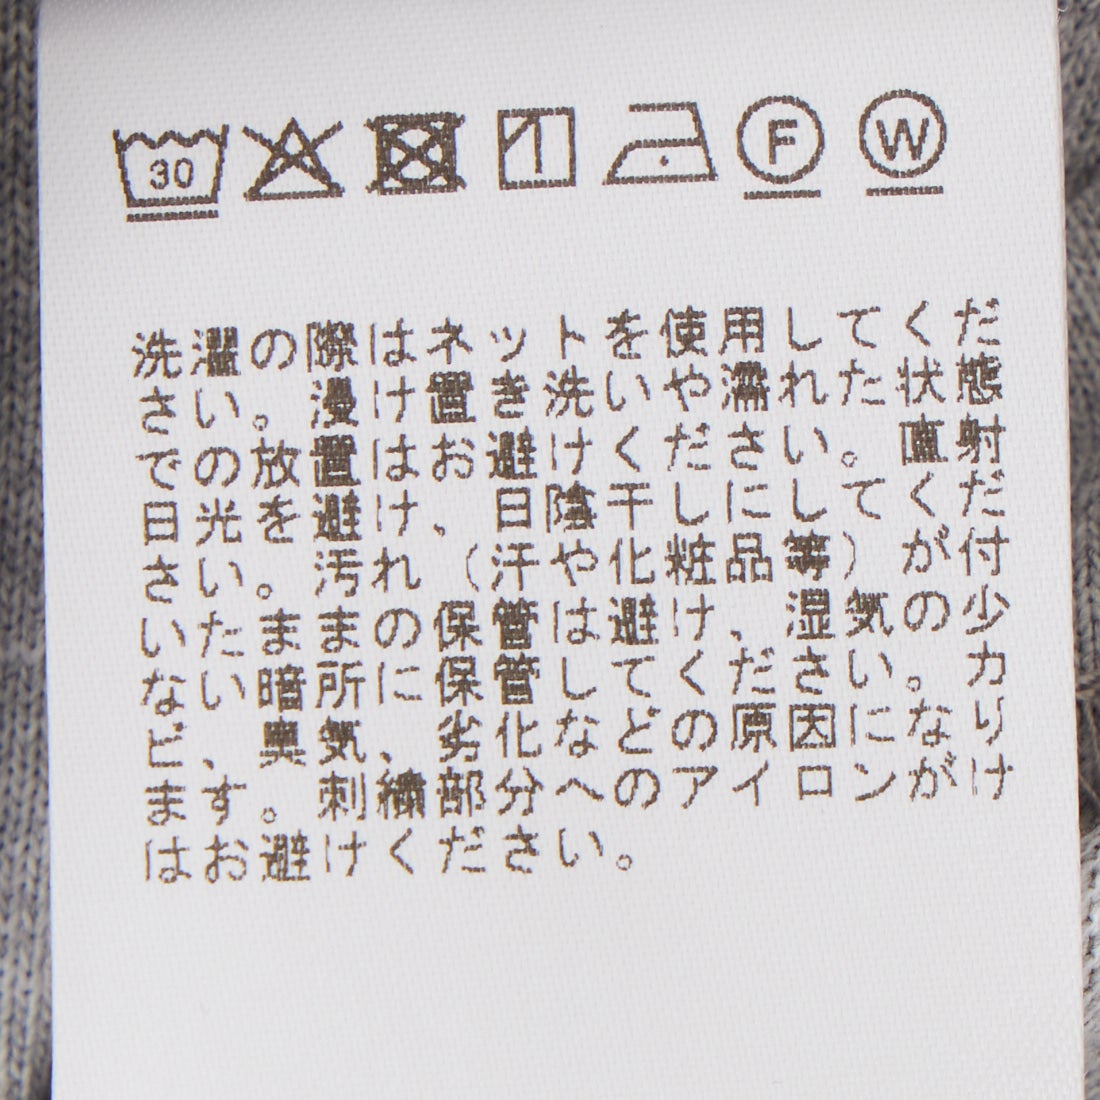 30 F W
洗濯の際はネットを使用してくだ
さい。浸け置き洗いや濡れた状態
での放置はお避けください。直射
日光を避け、日陰干しにしてくだ
さい。汚れ(汗や化粧品等)が付
いたままの保管は避け、湿気の少
ない暗所に保管してください。カ
ビ、臭気、劣化などの原因になり
ます。刺繍部分へのアイロンがけ
はお避けください。